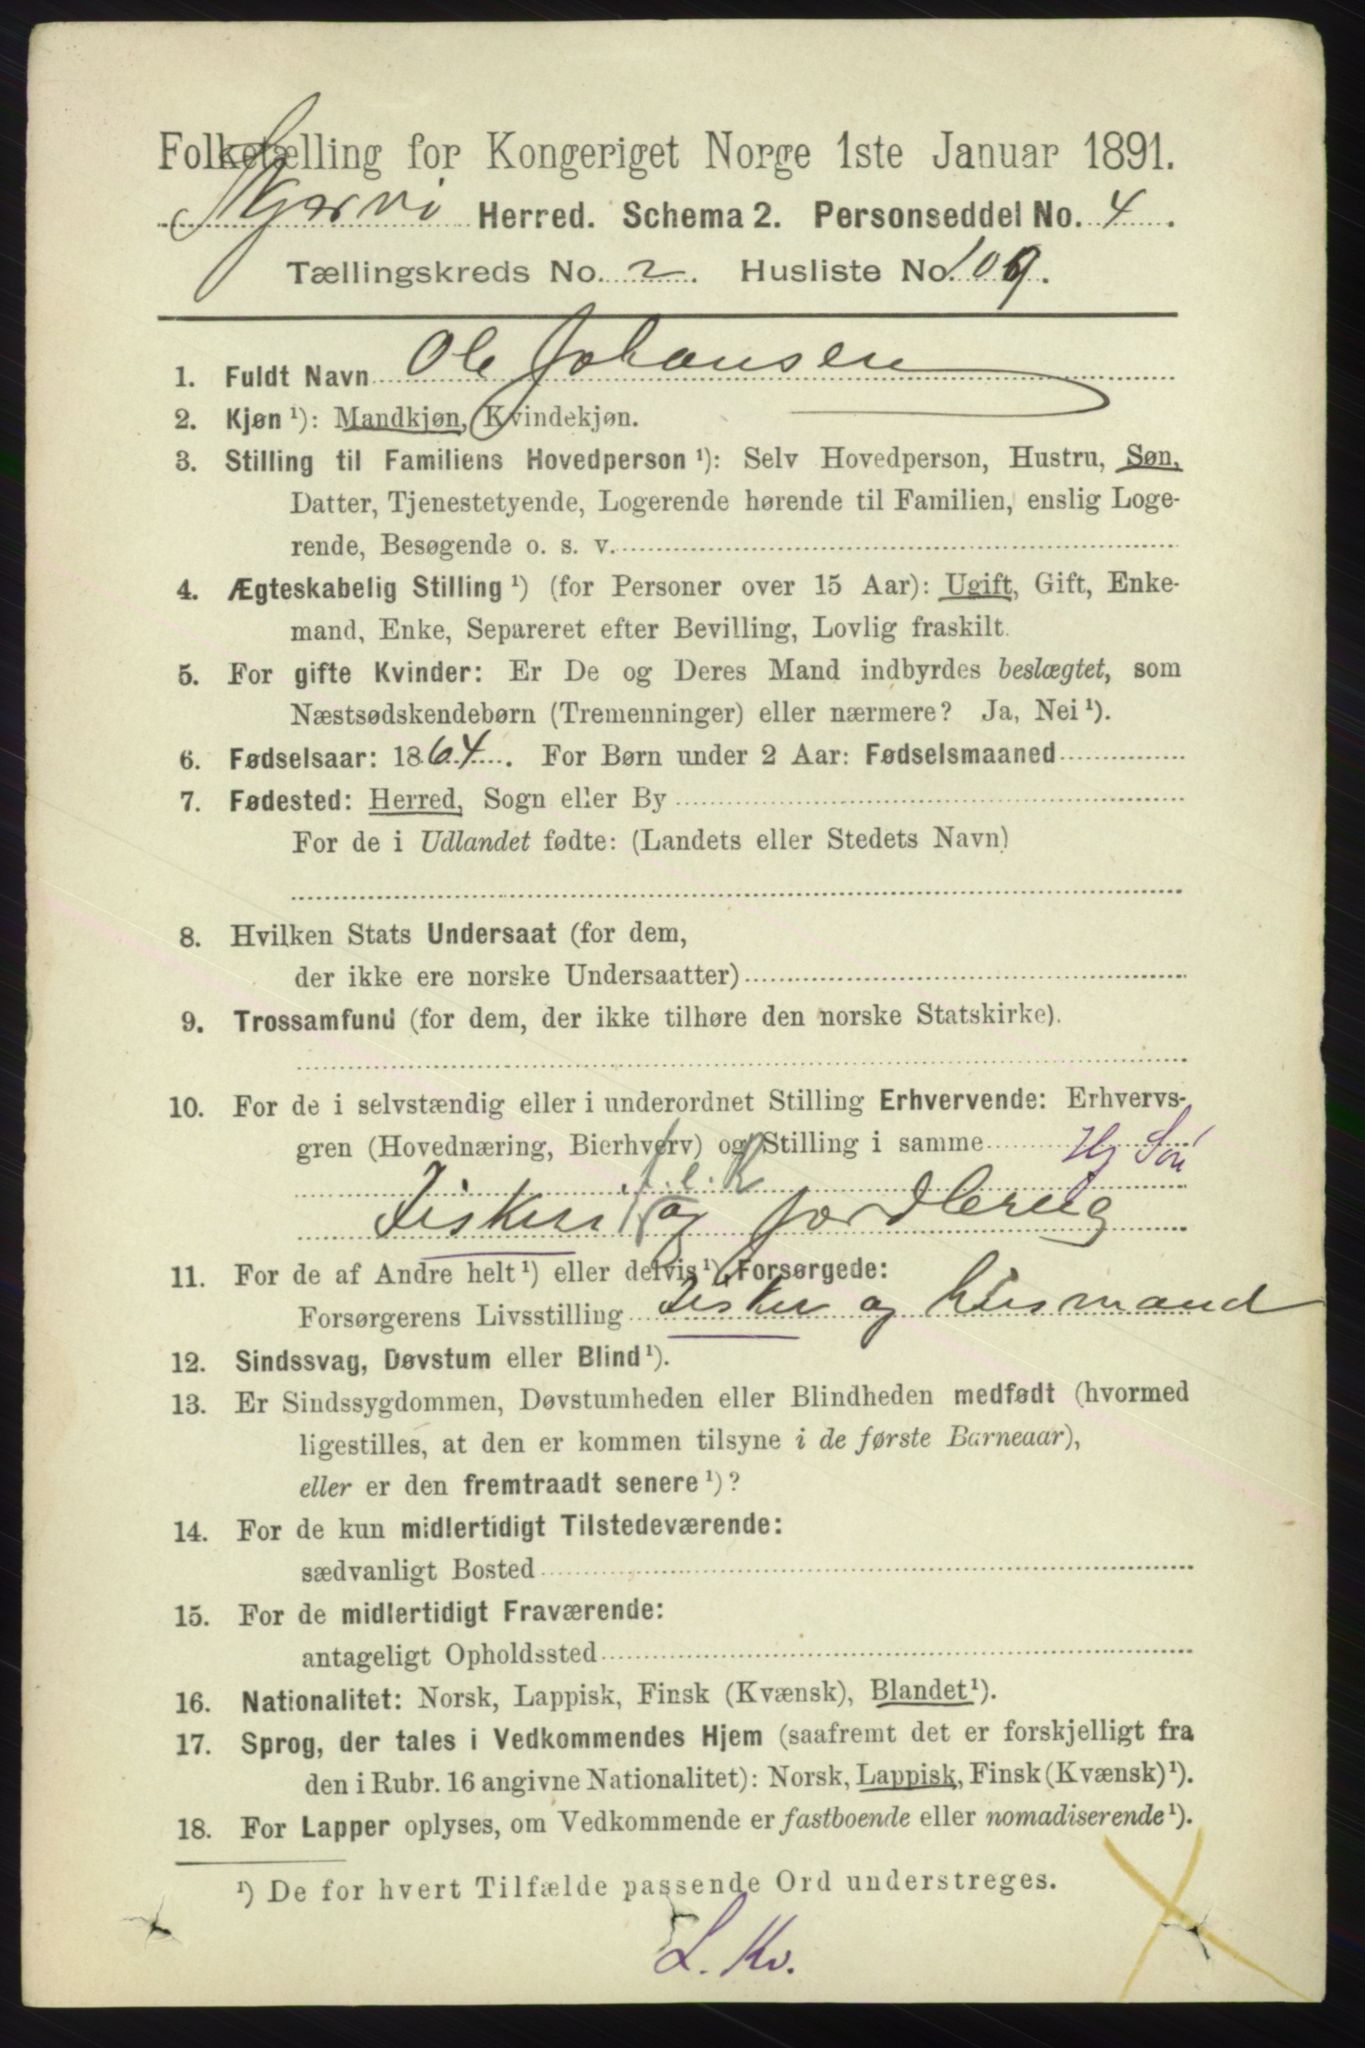 Folketælling for Kongeriget Norge 1ste Januar 1891.
Skjervø Herred. Schema 2. Personseddel No. 4.
Tællingskreds No. 2. Husliste No. 109.
1. Fuldt Navn Ole Johansen
2. Kjøn ¹): Mandkjøn, Kvindekjøn.
3. Stilling til Familiens Hovedperson ¹): Selv Hovedperson, Hustru, Søn,
Datter, Tjenestetyende, Logerende hørende til Familien, enslig Loge-
rende, Besøgende o. s. v.
4. Ægteskabelig Stilling ¹) (for Personer over 15 Aar): Ugift, Gift, Enke-
mand, Enke, Separeret efter Bevilling, Lovlig fraskilt.
5. For gifte Kvinder: Er De og Deres Mand indbyrdes beslægtet, som
Næstsødskendebørn (Tremenninger) eller nærmere? Ja, Nei ¹).
6. Fødselsaar: 1864. For Børn under 2 Aar: Fødselsmaaned
7. Fødested: Herred, Sogn eller By
For de i Udlandet fødte: (Landets eller Stedets Navn)
8. Hvilken Stats Undersaat (for dem,
der ikke ere norske Undersaatter)
9. Trossamfund (for dem, der ikke tilhøre den norske Statskirke).
10. For de i selvstændig eller i underordnet Stilling Erhvervende: Erhvervs-
gren (Hovednæring, Bierhverv) og Stilling i samme Hj Søn
Fisker og jordbrug
11. For de af Andre helt ¹) eller delvis ¹) Forsørgede:
Forsørgerens Livsstilling Fisker og husmand
12. Sindssvag, Døvstum eller Blind ¹).
13. Er Sindssygdommen, Døvstumheden eller Blindheden medfødt (hvormed
ligestilles, at den er kommen tilsyne i de første Barneaar),
eller er den fremtraadt senere ¹)?
14. For de kun midlertidigt Tilstedeværende:
sædvanligt Bosted
15. For de midlertidigt Fraværende:
antageligt Opholdssted
16. Nationalitet: Norsk, Lappisk, Finsk (Kvænsk), Blandet ¹).
17. Sprog, der tales i Vedkommendes Hjem (saafremt det er forskjelligt fra
den i Rubr. 16 angivne Nationalitet): Norsk, Lappisk, Finsk (Kvænsk) ¹).
18. For Lapper oplyses, om Vedkommende er fastboende eller nomadiserende ¹).
¹) De for hvert Tilfælde passende Ord understreges.
L. Kv.